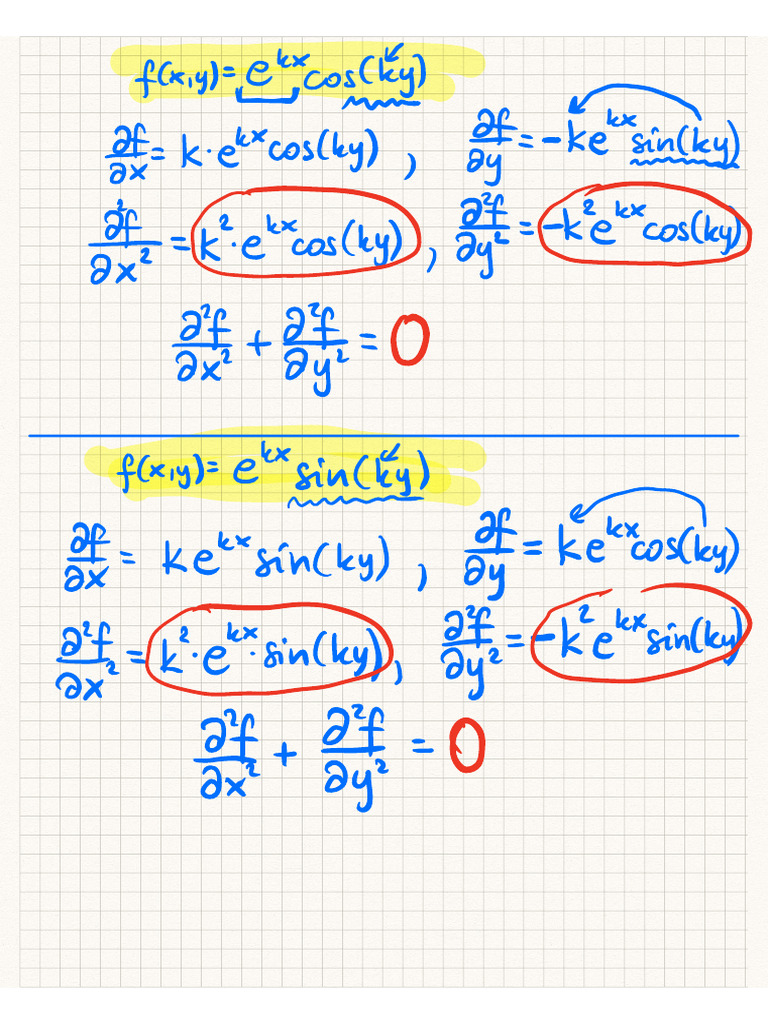 f(x,y) = e^{kx} cos(ky)
∂f/∂x = k·e^{kx} cos(ky) , ∂f/∂y = -ke^{kx} sin(ky)
∂²f/∂x² = k²·e^{kx} cos(ky) , ∂²f/∂y² = -k²e^{kx} cos(ky)
∂²f/∂x² + ∂²f/∂y² = 0
f(x,y) = e^{kx} sin(ky)
∂f/∂x = ke^{kx} sin(ky) , ∂f/∂y = ke^{kx} cos(ky)
∂²f/∂x² = k²·e^{kx}·sin(ky) , ∂²f/∂y² = -k²e^{kx} sin(ky)
∂²f/∂x² + ∂²f/∂y² = 0